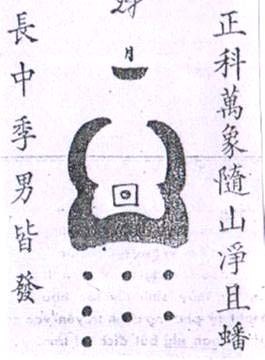 正科萬象隨山淨且蟠
月
長中季男皆發